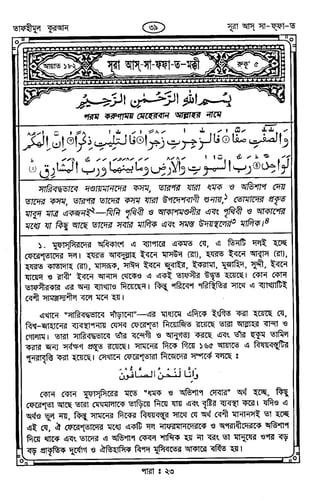 তাফহীমুল কুরআন ৩৯ সূরা আস্ সা-ফ্ফা-ত
আয়াত ১৮২ সূরা আস্-সা-ফ্ফা-ত-মক্কী রুকূ' ৫
بِسْمِ اللهِ الرَّحْمٰنِ الرَّحِيْمِ
পরম করুণাময় মেহেরবান আল্লাহর নামে
وَالصّٰٓفّٰتِ صَفًّا ۝ فَالزّٰجِرٰتِ زَجْرًا ۝ فَالتّٰلِيٰتِ ذِكْرًا ۝ اِنَّ اِلٰهَكُمْ
لَوَاحِدٌ ۝ رَبُّ السَّمٰوٰتِ وَالْاَرْضِ وَمَا بَيْنَهُمَا وَرَبُّ الْمَشَارِقِ ۝
সারিবদ্ধভাবে দণ্ডায়মানদের কসম, তারপর যারা ধমক ও অভিশাপ দেয়
তাদের কসম, তারপর তাদের কসম যারা উপদেশবাণী শুনায়,১ তোমাদের প্রকৃত
মাবুদ মাত্র একজনই২—যিনি পৃথিবী ও আকাশমণ্ডলীর এবং পৃথিবী ও আকাশের
মধ্যে যা কিছু আছে তাদের সবার মালিক এবং সমস্ত উদয়স্থলের৩ মালিক।৪
১. মুফাস্সিরদের অধিকাংশ এ ব্যাপারে একমত যে, এ তিনটি দলই হচ্ছে
ফেরেশ্তাদের দল। হযরত আবদুল্লাহ ইবনে মাসউদ (রা), হযরত ইবনে আব্বাস (রা),
হযরত কাতাদাহ (রা), মাসরূক, সাঈদ ইবনে জুবাইর, ইকরামা, মুজাহিদ, সুদ্দী, ইবনে
যায়েদ ও রাবী' ইবনে আনাস থেকেও এ একই তাফসীর উদ্ধৃত হয়েছে। কোন কোন
তাফসীরকার এর অন্য ব্যাখ্যাও দিয়েছেন। কিন্তু পরিবেশ পরিস্থিতির সাথে এ ব্যাখ্যাটিই
বেশী সামঞ্জস্যশীল বলে মনে হয়।
এখানে "সারিবদ্ধভাবে দাঁড়ানো"—এর মাধ্যমে এদিকে ইংগিত করা হয়েছে যে,
বিশ্ব-জাহানের ব্যবস্থাপনায় যেসব ফেরেশ্তা নিয়োজিত রয়েছে তারা আল্লাহর বান্দা ও
গোলাম। তারা সারিবদ্ধভাবে তাঁর বন্দেগী ও আনুগত্য করছে এবং তাঁর হুকুম তামিল
করার জন্য সর্বক্ষণ প্রস্তুত রয়েছে। সামনের দিকে গিয়ে ১৬৫ আয়াতে এ বিষয়বস্তুটির
পুনরাবৃত্তি করা হয়েছে। সেখানে ফেরেশতারা নিজেদের সম্পর্কে বলছে ঃ
وَاِنَّا لَنَحْنُ الصَّآفُّوْنَ
কোন কোন মুফাস্সিরের মতে "ধমক ও অভিশাপ দেবার" অর্থ হচ্ছে, কিছু
ফেরেশ্তা আছে তারা মেঘমালাকে তাড়িয়ে নিয়ে যায় এবং বৃষ্টির ব্যবস্থা করে। যদিও এ
অর্থও ভুল নয়, কিন্তু সামনের দিকের বিষয়বস্তুর সাথে যে অর্থ বেশী মানানসই তা হচ্ছে
এই যে, ঐ ফেরেশ্তাদের মধ্যে একটি দল নাফরমানদেরকে ও অপরাধীদেরকে অভিশাপ
দিয়ে থাকে এবং তাদের এ অভিশাপ কেবল শাব্দিক হয় না বরং তা মানুষের ওপর বড়
বড় প্রাকৃতিক দুর্যোগ ও ঐতিহাসিক বিপদ মুসিবতের আকারে বর্ষিত হয়।
পারা ঃ ২৩